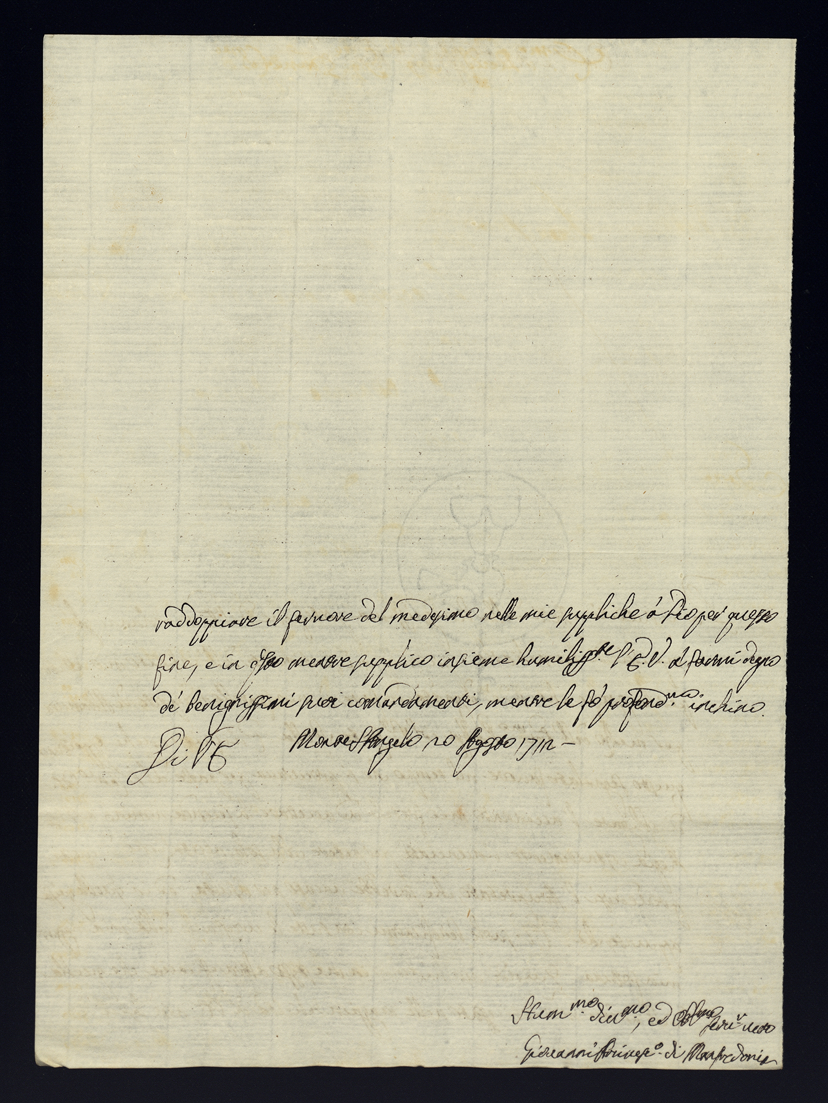 raddoppiare il fervore del medesimo nelle mie suppliche à Dio per questo
fine, e in q.sto mentre supplico insieme humiliss.te l'E.V. à farmi degno
de' benignissimi suoi comandamenti, mentre le fò profond.mo inchino.
Di V.E. Monte S. Angelo 20 Agosto 1712 –
Hum.mo Div.mo, ed Obl.mo Serv.r vero
Giovanni Arcivesc.o di Manfredonia